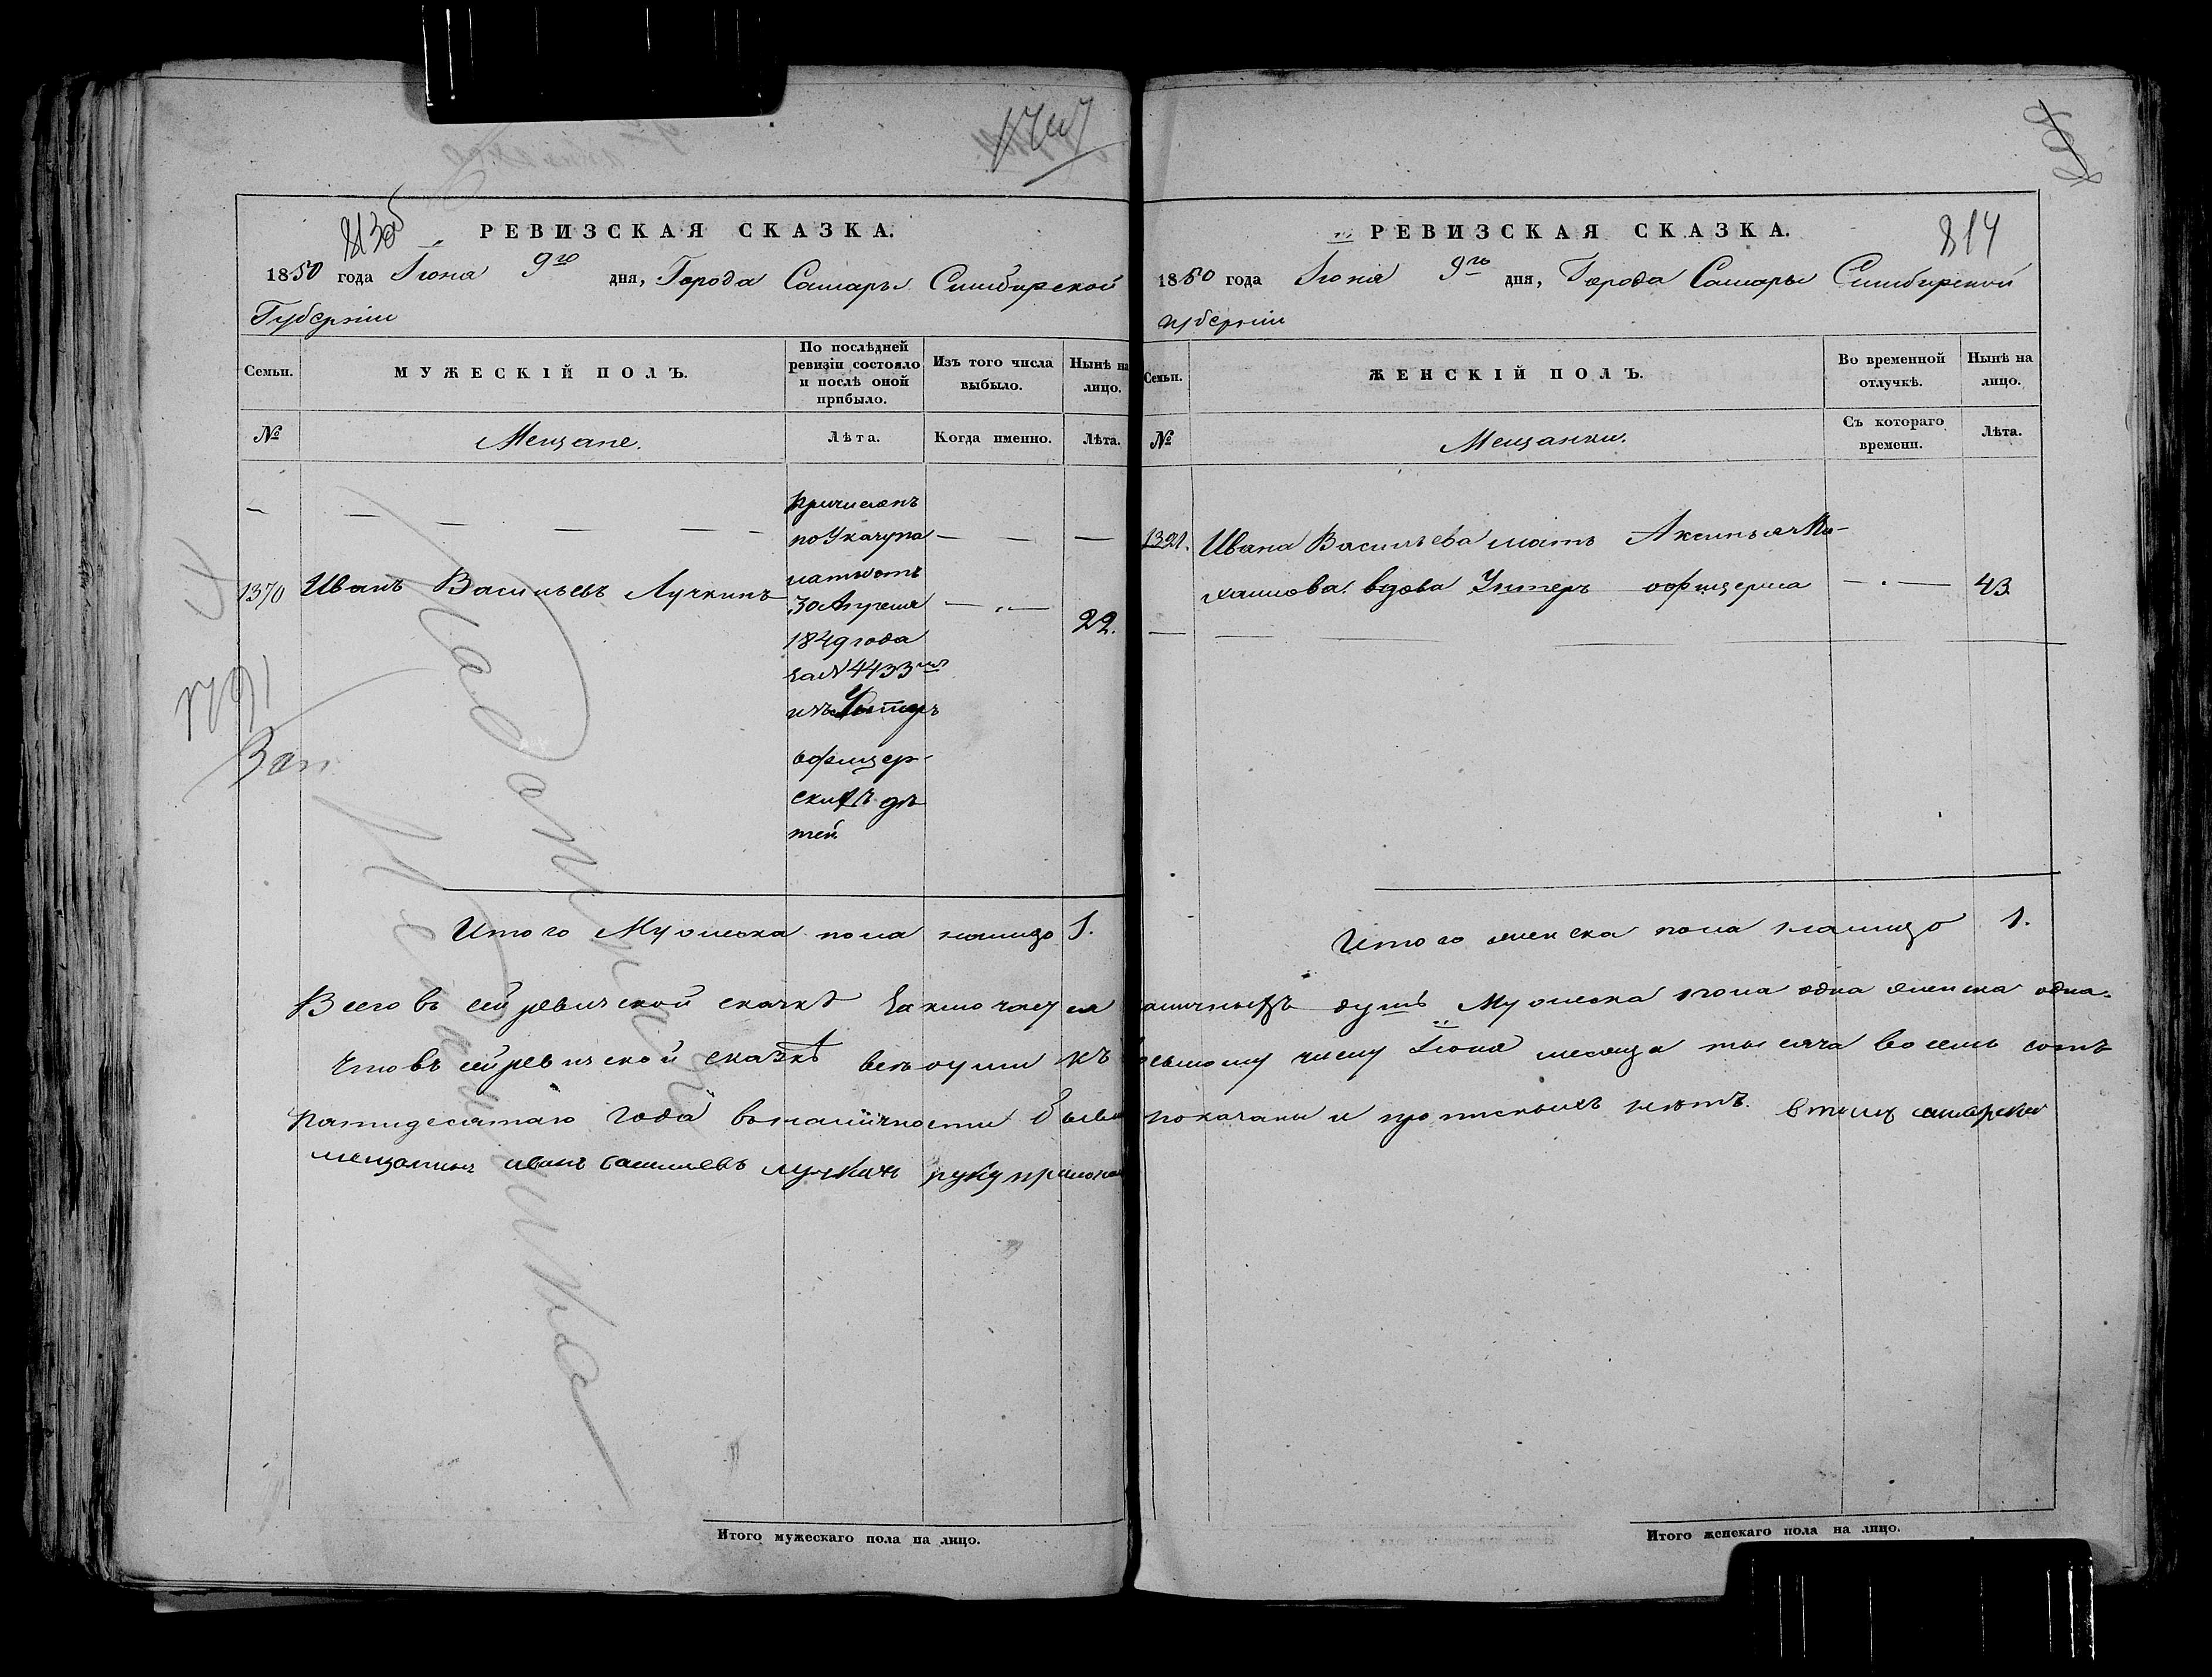 1747
813об
РЕВИЗСКАЯ СКАЗКА.
1850 года Іюня 9го дня, Города Самары Симбирской
Губерніи
Семьи. МУЖЕСКІЙ ПОЛЪ. По послѣдней ревизіи состояло и послѣ оной прибыло. Изъ того числа выбыло. Нынѣ на лицо.
№ Мещане. Лѣта. Когда именно. Лѣта.
Причисленъ
по Указу па
латы отъ
30 Апреля
1849 года
за № 4433мъ
изъ Унтеръ
офицер-
скихъ дѣ
тей
1370 Иванъ Васильевъ Лучкинъ 22.
Итого Мужеска пола налицо 1.
814
РЕВИЗСКАЯ СКАЗКА.
1850 года Іюня 9го дня, Города Самары Симбирской
губерніи
Семьи. ЖЕНСКІЙ ПОЛЪ. Во временной отлучкѣ. Нынѣ на лицо.
№ Мещанки. Съ котораго времени. Лѣта.
1321. Ивана Васильева мать Аксинья Ми-
хаилова вдова Унтеръ офицерша 43
Итого женска пола налицо 1.
Всего въ сей ревизской сказкѣ заключается наличныхъ душъ Мужеска пола одна женска одна.
Что въ сей ревизской сказкѣ всѣ души къ Іюня месяца тысяча восемь сотъ
пятидесятаго года въ наличности показаны и прописныхъ нѣтъ. в томъ самарской
мещанинъ иванъ василевъ лучкинъ руку приложилъ
Итого мужескаго пола на лицо.
Итого женскаго пола на лицо.